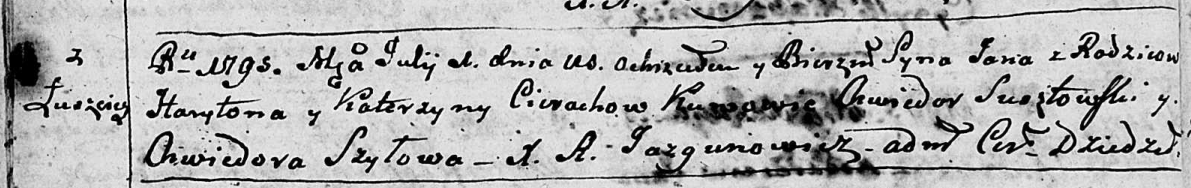 z Łuszczycy
Ru 1795. Mca Julij d. dnia us. ochrzciłem y Bierzm Syna Jana z Rodzicow
Harytona y Katerzyny Cierachow Kumowie Chwiedor Susztowski y
Chwiedora Szyłowa – X. A. Jazgunowicz – adm Cer. Dziedził.